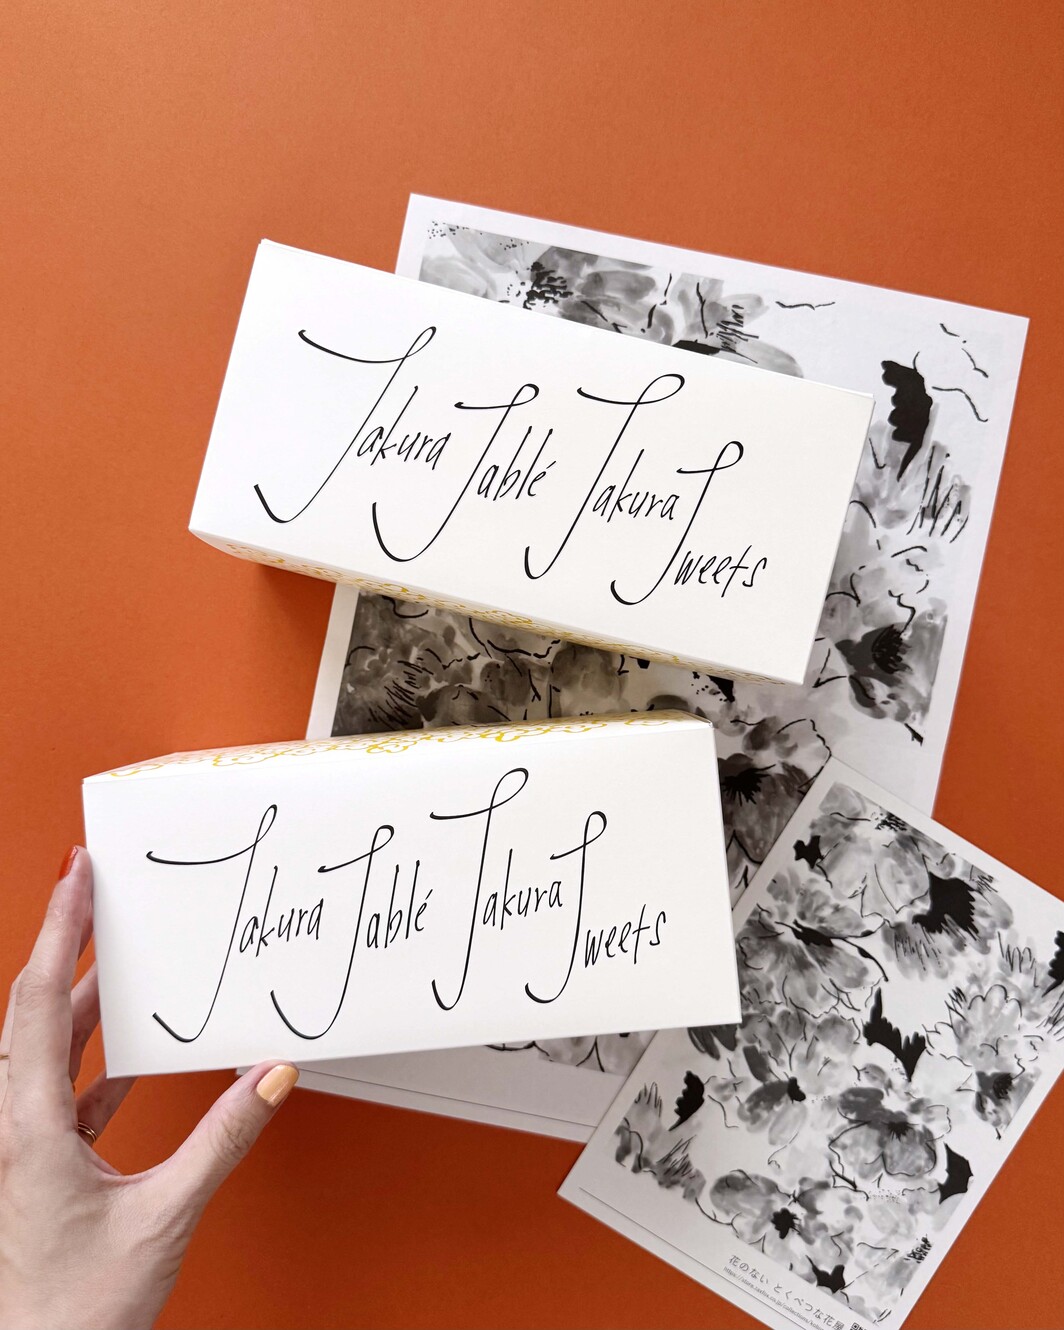 Sakura Sablé Sakura Sweets
Sakura Sablé Sakura Sweets
花のない とくべつな花屋